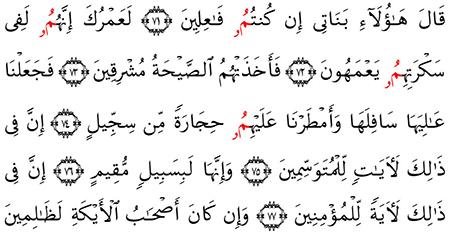 قَالَ هَـٰٓؤُلَآءِ بَنَاتِى إِن كُنتُمُۥ فَـٰعِلِينَ ﴿٧١﴾ لَعَمْرُكَ إِنَّهُمُۥ لَفِى
سَكْرَتِهِمُۥ يَعْمَهُونَ ﴿٧٢﴾ فَأَخَذَتْهُمُ ٱلصَّيْحَةُ مُشْرِقِينَ ﴿٧٣﴾ فَجَعَلْنَا
عَـٰلِيَهَا سَافِلَهَا وَأَمْطَرْنَا عَلَيْهِمُۥ حِجَارَةً مِّن سِجِّيلٍ ﴿٧٤﴾ إِنَّ فِى
ذَٰلِكَ لَـَٔايَـٰتٍ لِّلْمُتَوَسِّمِينَ ﴿٧٥﴾ وَإِنَّهَا لَبِسَبِيلٍ مُّقِيمٍ ﴿٧٦﴾ إِنَّ فِى
ذَٰلِكَ لَـَٔايَةً لِّلْمُؤْمِنِينَ ﴿٧٧﴾ وَإِن كَانَ أَصْحَـٰبُ ٱلْأَيْكَةِ لَظَـٰلِمِينَ